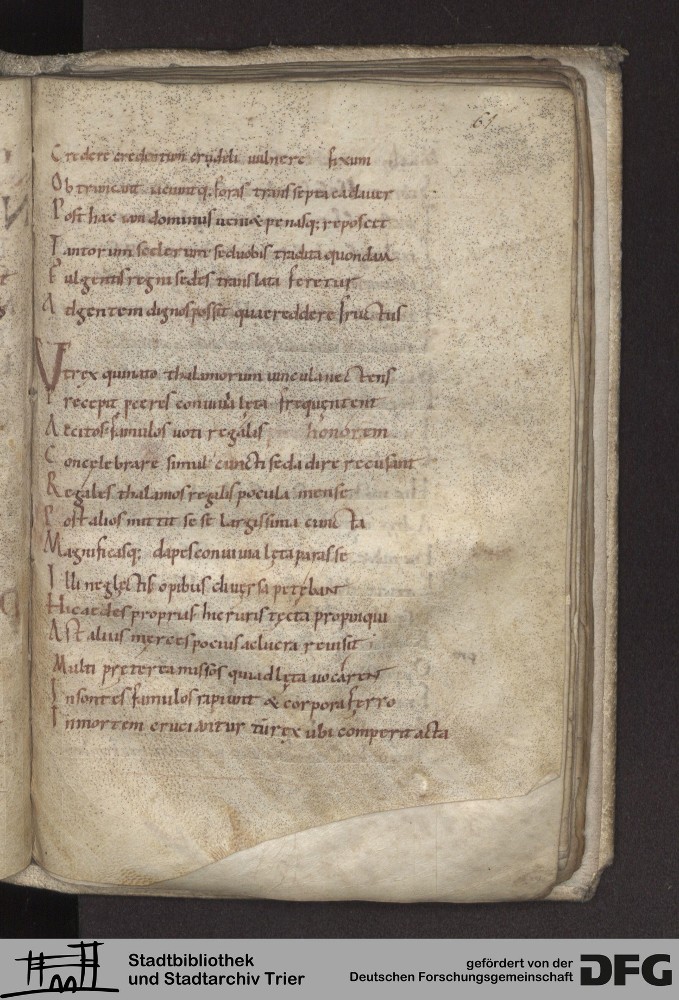 61
Credere credentum crudeli vulnere fixum
Obtruncant iaciuntq; foras trans septa cadauer
Post haec cum dominus ueniet penasq; reposcet
Tantorum scelerum sed uobis tradita quondam
Fulgentis regni sedes translata feretur
Ad gentem dignos possit quae reddere fructus
Ut rex quinato thalamorum uincula nectens
Precepit pceres conuiuia lęta frequentent
Accitos famulos uoti regalis honorem
Concelebrare simul cuncti sed adire recusant
Regales thalamos regalis pocula mense
Post alios mittit sese largissima cuncta
Magnificasq; dapes conuiuia lęta parasse
Illi neglectis opibus diuersa petebant
Hic aedes proprias hic ruris tecta propinqui
Ast alius merces pocius ac lucra reuisit
Multi pręterea missos qui ad lęta uocarent
Insontes famulos rapiunt & corpora ferro
In mortem cruciantur tū rex ubi comperit acta
Stadtbibliothek
und Stadtarchiv Trier
gefördert von der
Deutschen Forschungsgemeinschaft
DFG